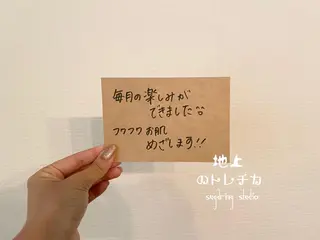 毎月の楽しみが
できました
フワフワお肌
めざします!!
地上
のトレチカ
sugaring studio